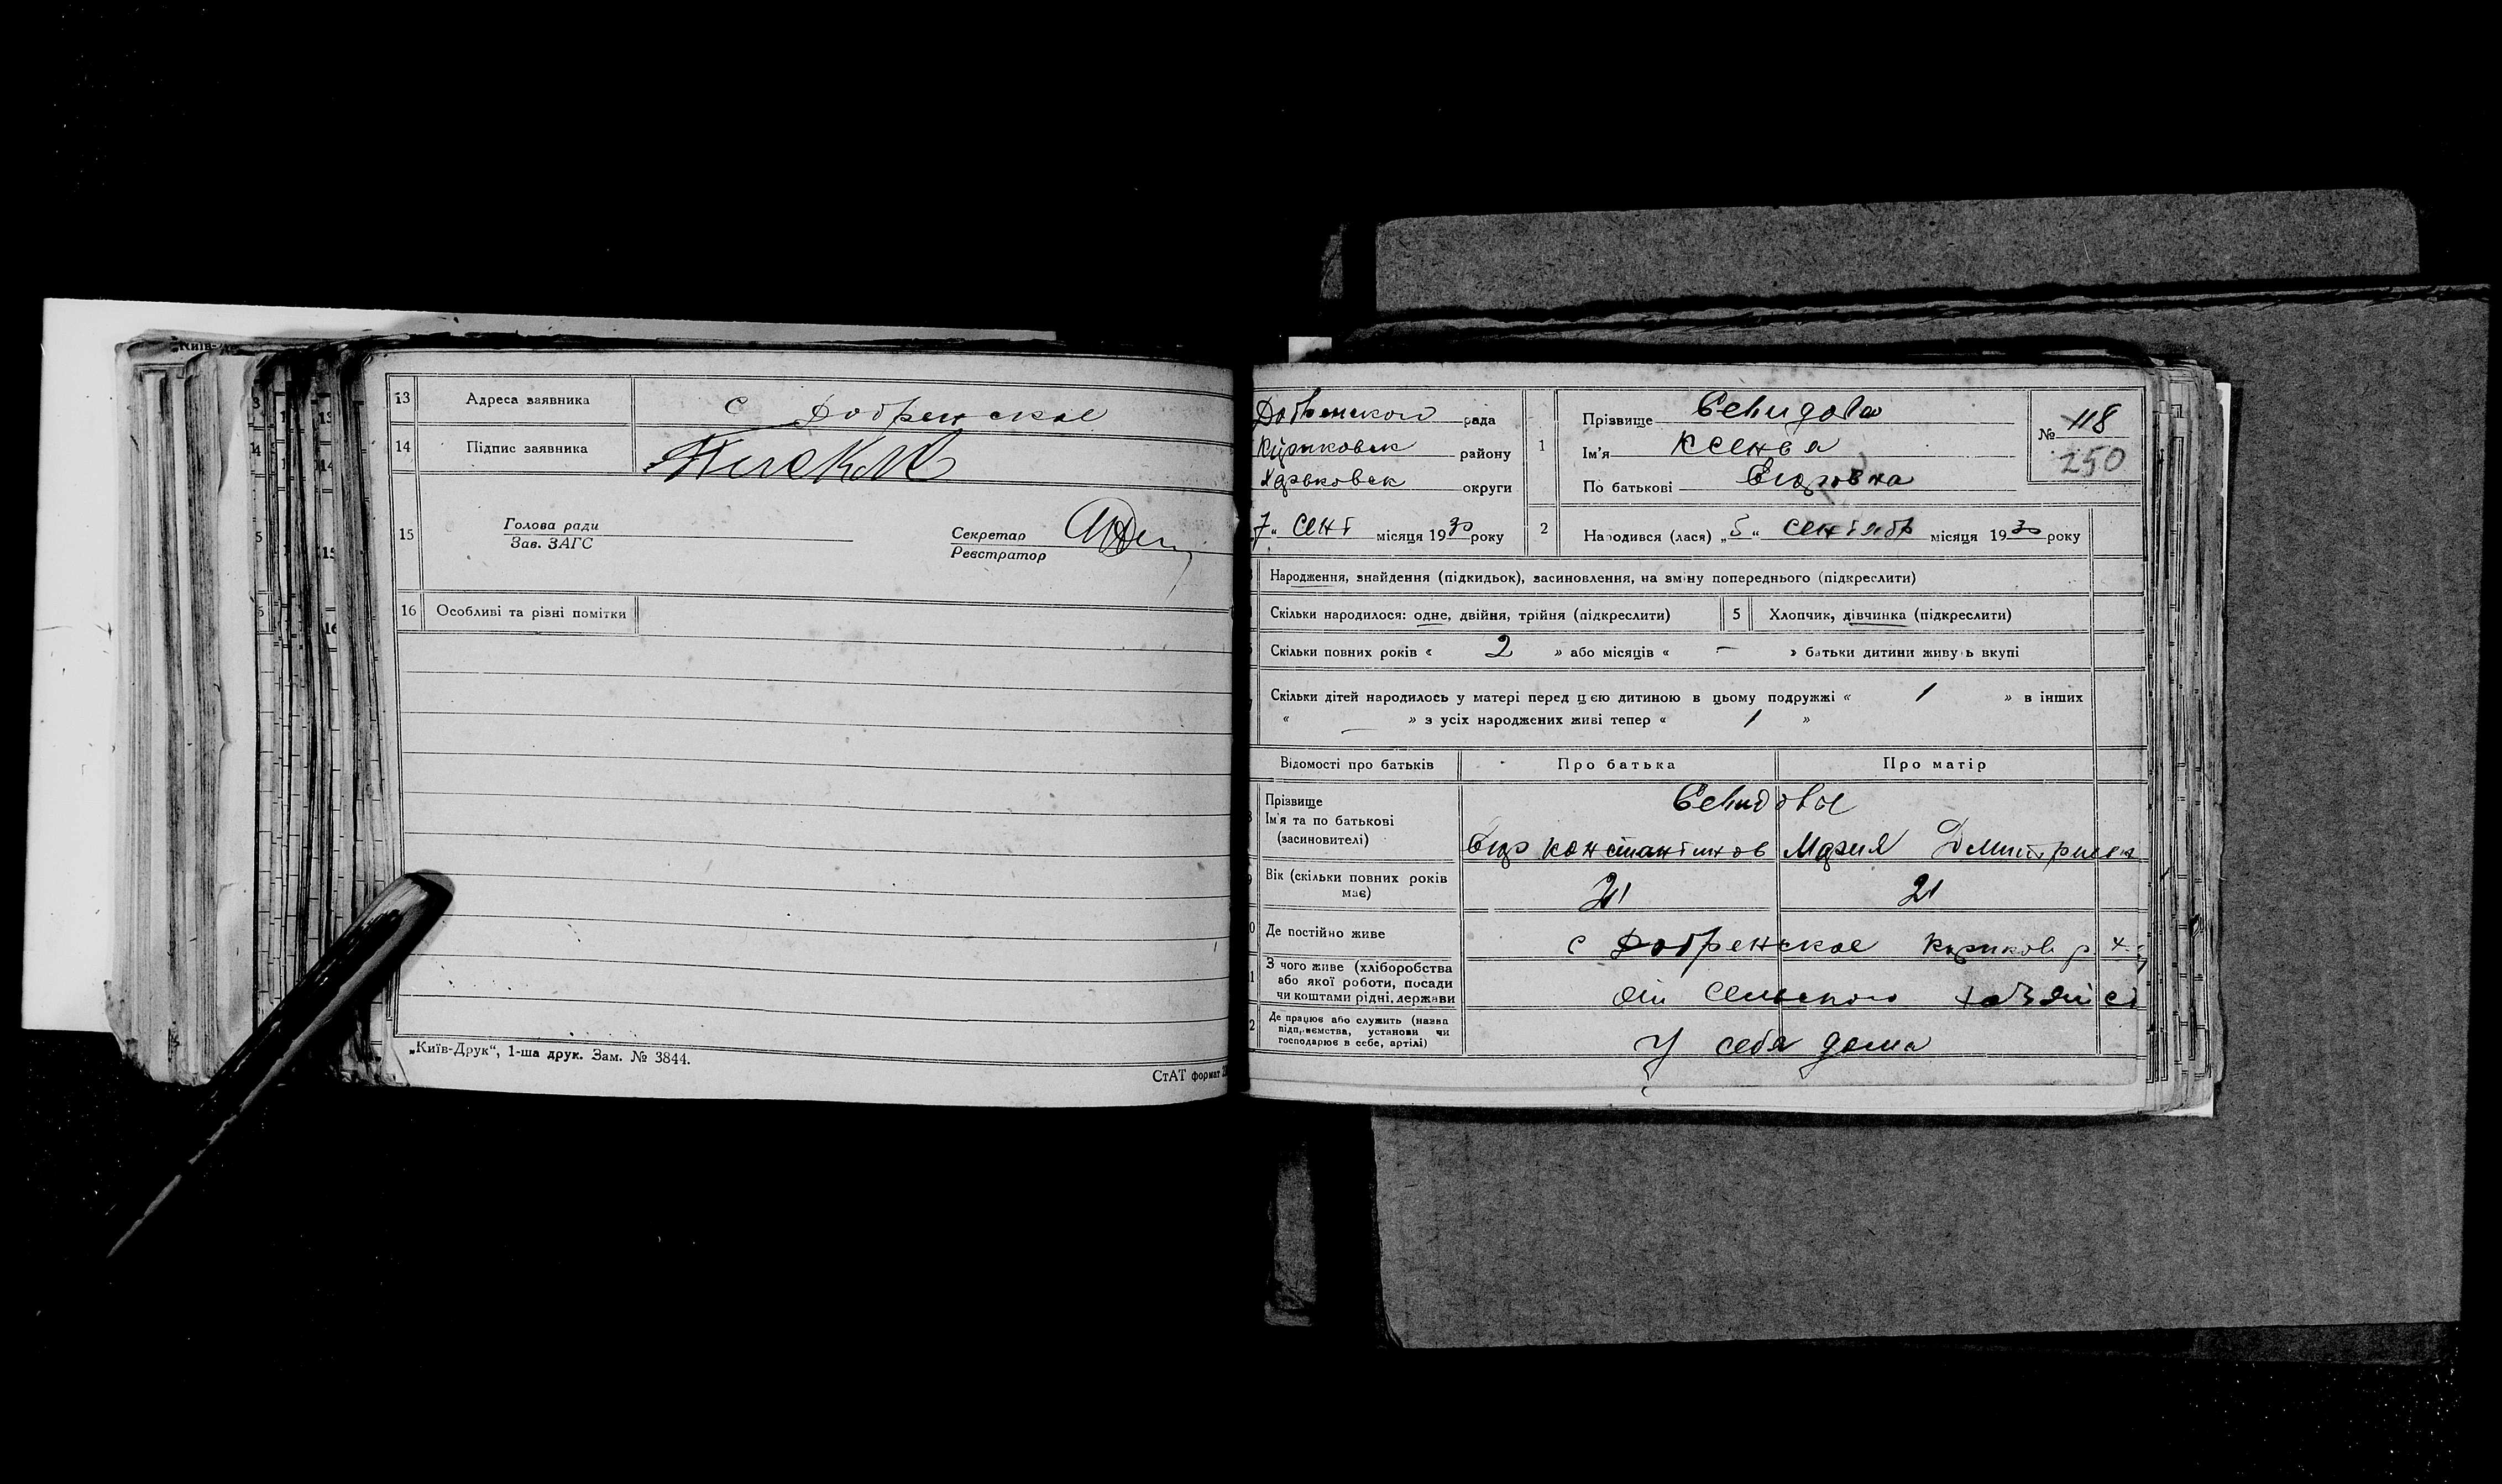 13 Адреса заявника с Добренское
14 Підпис заявника
15 Голова ради
Зав. ЗАГС
Секретар
Реєстратор
16 Особливі та різні помітки
„Київ-Друк“, 1-ша друк. Зам. № 3844.
СтАТ формат
рада
району
Харьковск округи
7 " сент місяця 1930 року
1 Прізвище
Ім'я Ксенья
По батькові Егоровна
№ 118
250
2 Народився (лася) „5 " сентябр місяця 1930 року
Народження, знайдення (підкидьок), засиновлення, на зміну попереднього (підкреслити)
Скільки народилося: одне, двійня, трійня (підкреслити)
5 Хлопчик, дівчинка (підкреслити)
Скільки повних років « 2 » або місяців « — » батьки дитини живуть вкупі
Скільки дітей народилось у матері перед цією дитиною в цьому подружжі « 1 » в інших
« — » з усіх народжених живі тепер « 1 »
Відомості про батьків Про батька Про матір
Прізвище
Ім'я та по батькові
(засиновителі)
Егор Константинов Мария Дмитриевна
Вік (скільки повних років
має)
21 21
Де постійно живе с Добренское
З чого живе (хліборобства
або якої роботи, посади
чи коштами рідні, держави
от сельского хозяйс
Де працює або служить (назва
підприємства, установи чи
господарює в себе, артілі)
У себя дома